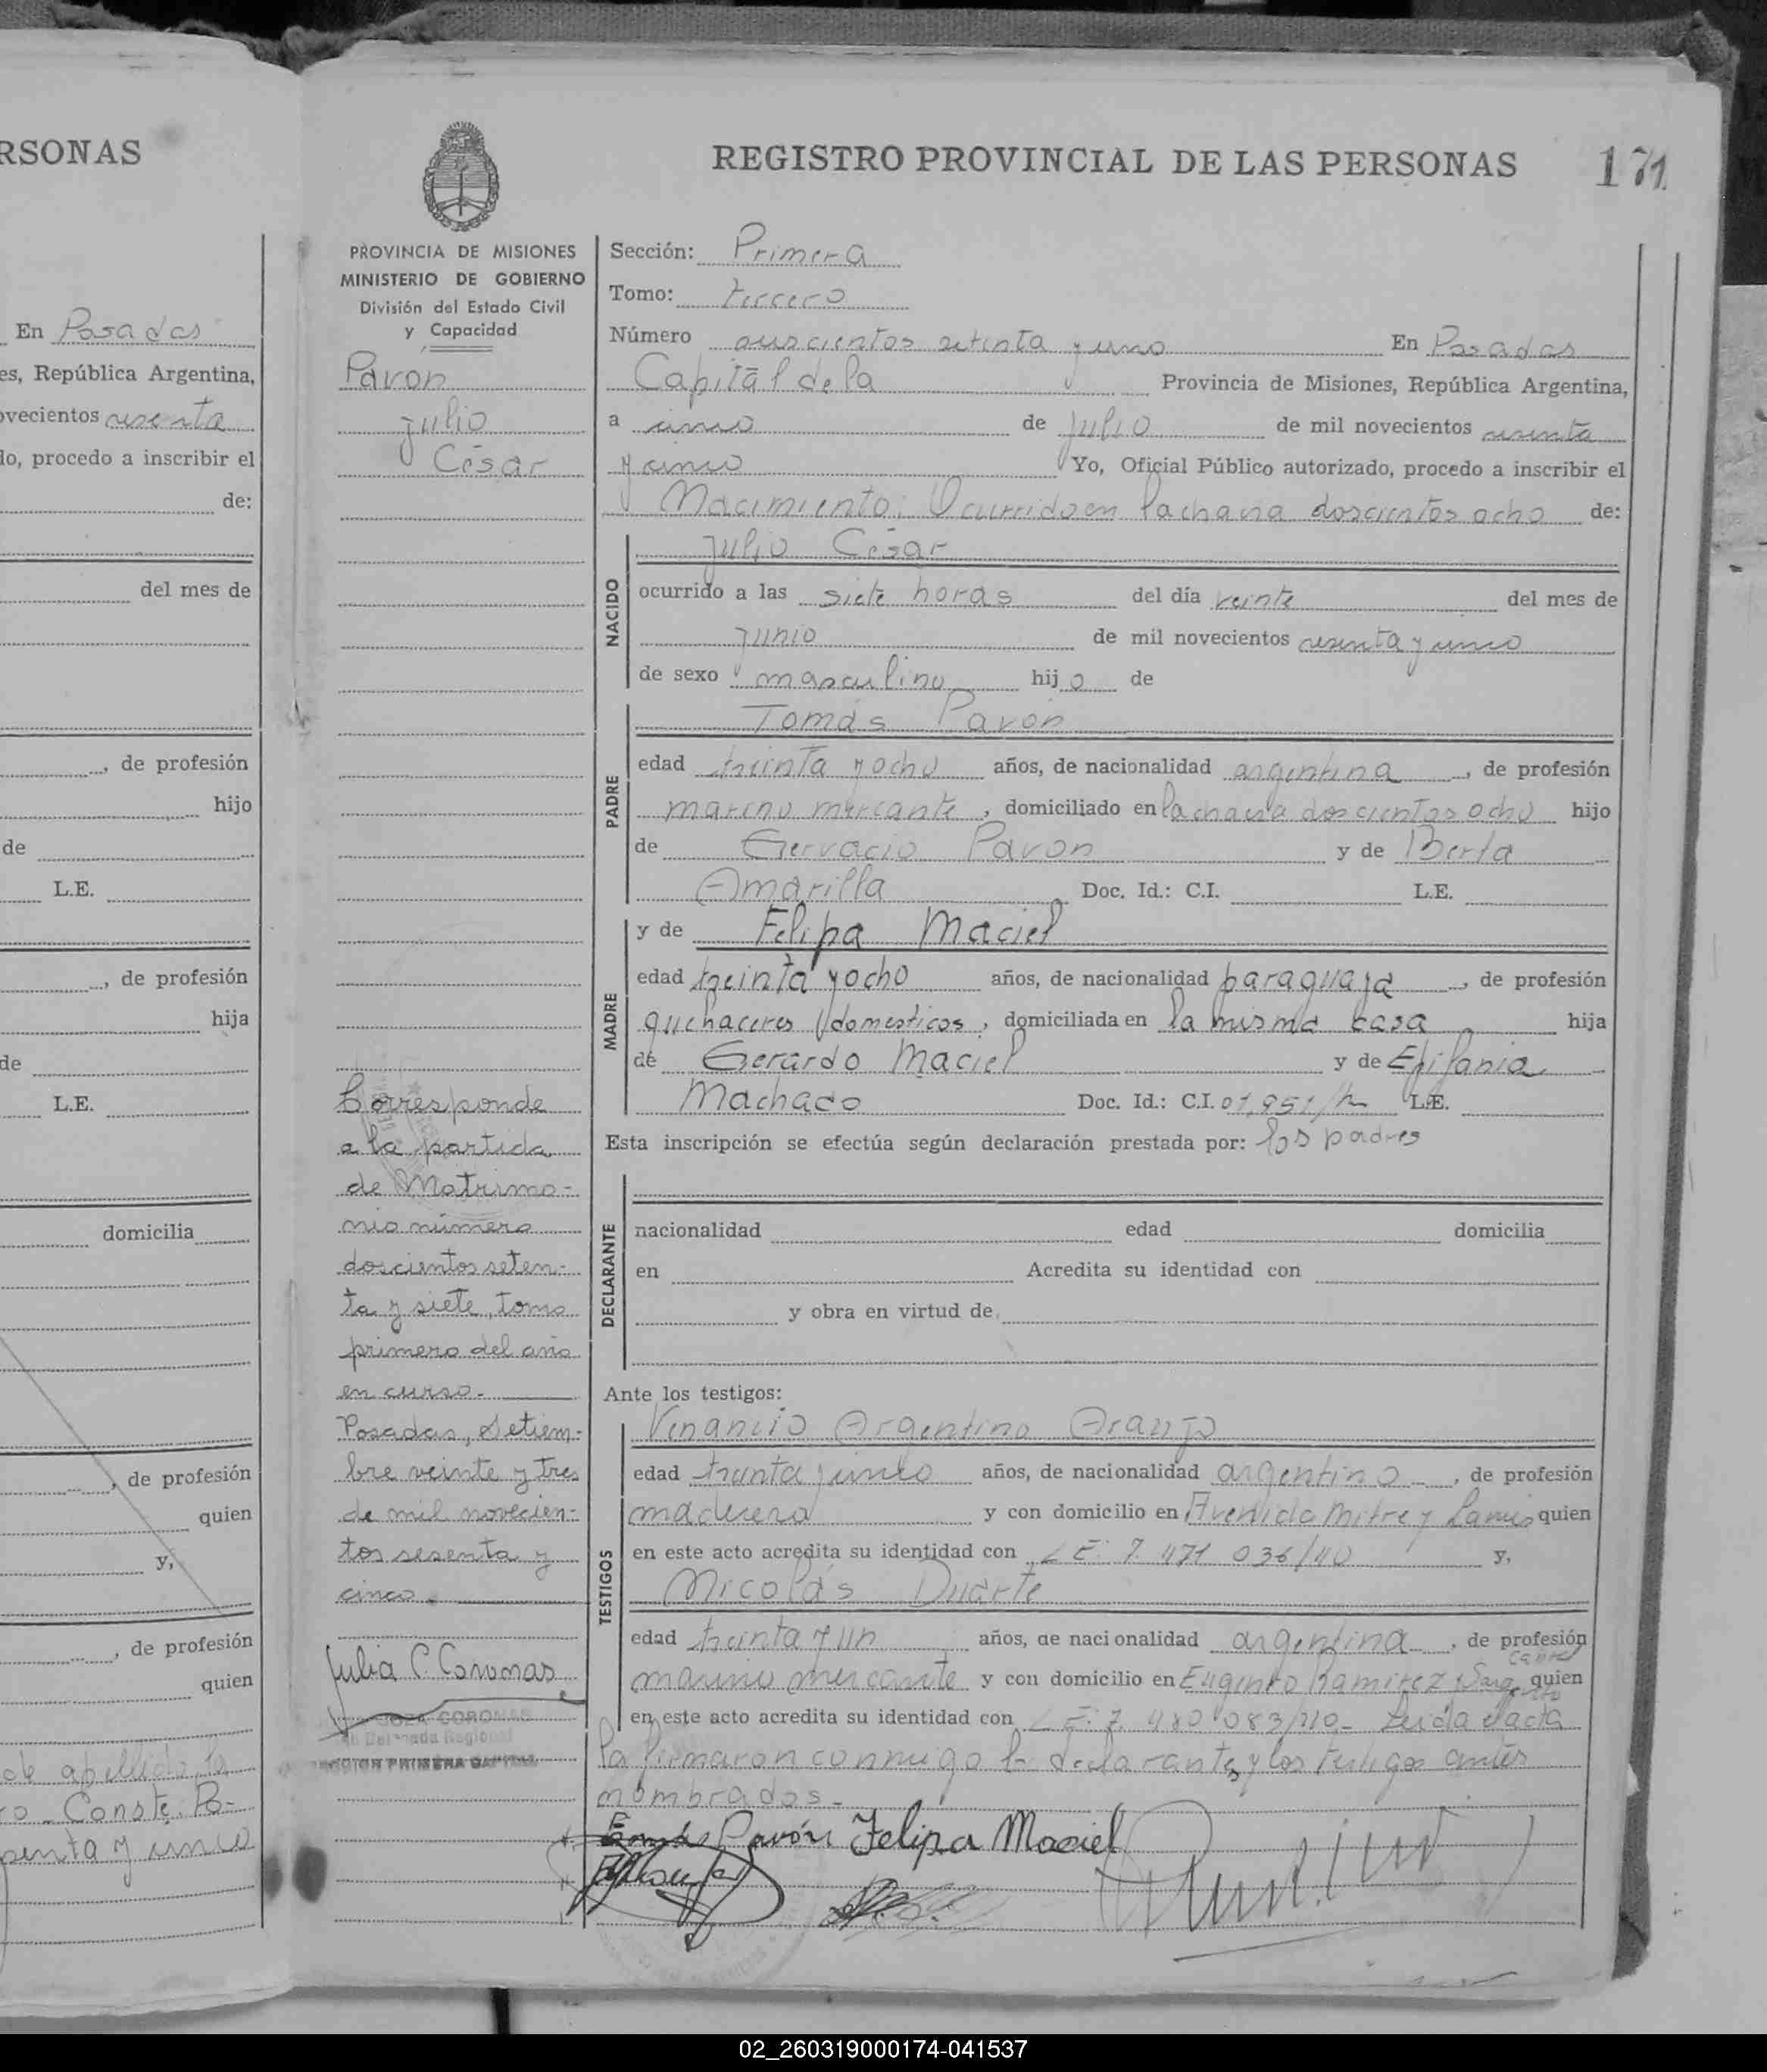 RSONAS
En Posadas
es, República Argentina,
ovecientos sesenta
do, procedo a inscribir el
de:
del mes de
, de profesión
hijo
de
L.E.
, de profesión
hija
de
L.E.
domicilia
, de profesión
quien
y,
, de profesión
quien
de apellido la
Conste. Po-
senta y cinco
REGISTRO PROVINCIAL DE LAS PERSONAS 171
PROVINCIA DE MISIONES
MINISTERIO DE GOBIERNO
División del Estado Civil
y Capacidad
Pavon
Julio
César
Corresponde
a la partida
de Matrimo-
nio número
doscientos seten-
ta y siete, tomo
primero del año
en curso.
Posadas, Setiem-
bre veinte y tres
de mil novecien-
tos sesenta y
cinco.
Julia C. Coronas
CORONAS
Delegada Regional
SECCION PRIMERA CAPITAL
Sección: Primera
Tomo: tercero
Número quinientos setenta y uno En Posadas
Capital de la Provincia de Misiones, República Argentina,
a cinco de Julio de mil novecientos sesenta
y cinco Yo, Oficial Público autorizado, procedo a inscribir el
Nacimiento: Ocurrido en la chacra doscientos ocho de:
Julio César
NACIDO
ocurrido a las siete horas del día veinte del mes de
Junio de mil novecientos sesenta y cinco
de sexo masculino hijo de
PADRE
Tomás Pavón
edad treinta y ocho años, de nacionalidad argentina, de profesión
marino mercante, domiciliado en la chacra doscientos ocho hijo
de Gervacio Pavon y de Berta
Amarilla Doc. Id.: C.I. L.E.
MADRE
y de Felipa Maciel
edad treinta y ocho años, de nacionalidad paraguaya, de profesión
quehaceres domesticos, domiciliada en la misma casa hija
de Gerardo Maciel y de Epifania
Machado Doc. Id.: C.I. 01,951/ L.E.
Esta inscripción se efectúa según declaración prestada por: los padres
DECLARANTE
nacionalidad edad domicilia
en Acredita su identidad con
y obra en virtud de
Ante los testigos:
TESTIGOS
Venancio Argentino Araujo
edad treinta y cinco años, de nacionalidad argentino, de profesión
maderero y con domicilio en Avenida Mitre y Lanus quien
en este acto acredita su identidad con L E: 7. 471 036/40 y,
Nicolás Duarte
edad treinta y un años, de nacionalidad argentina, de profesión
marino mercante y con domicilio en Eugenio Ramirez y Sargento quien
en este acto acredita su identidad con L E: 7. 480 083/ Leida el acta
la firmaron conmigo los declarantes y los testigos antes
nombrados.-
Pavón Felipa Maciel
02_260319000174-041537